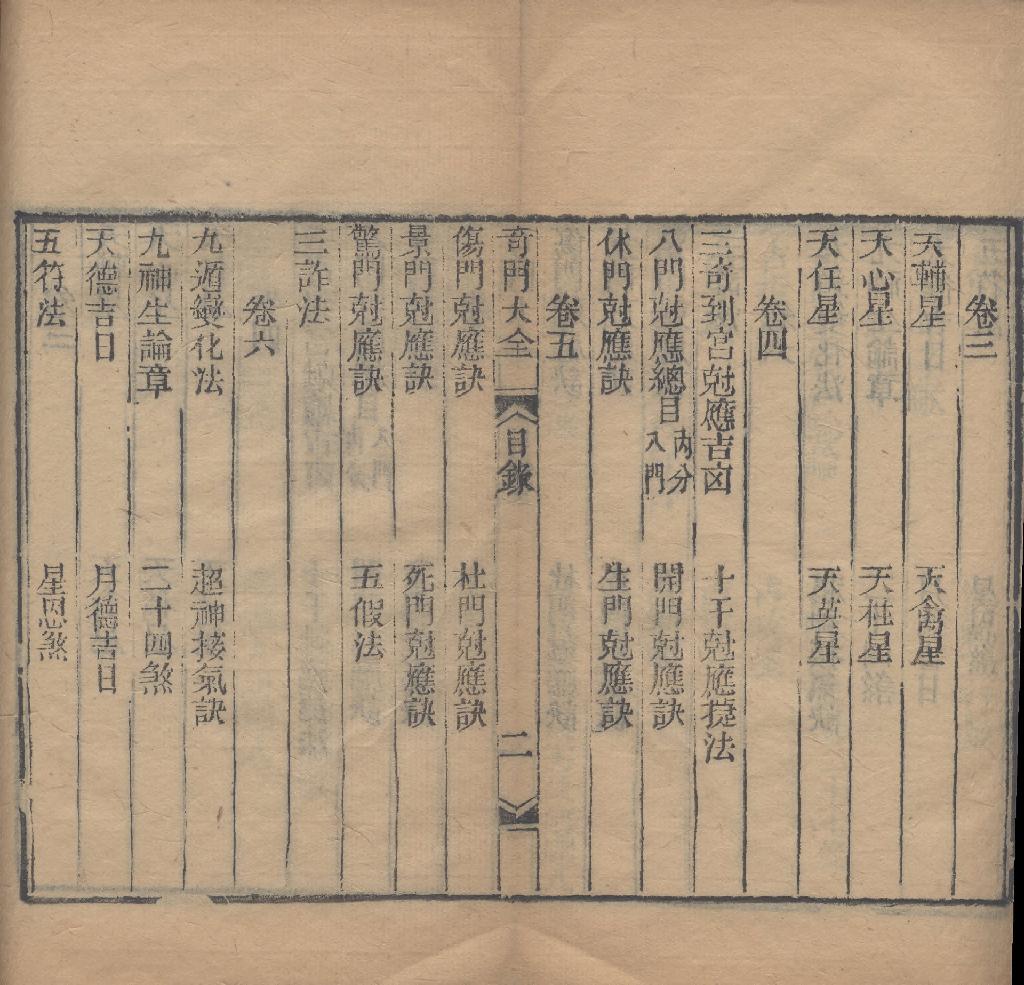 卷三
天輔星　天禽星
天心星　天柱星
天任星　天英星
卷四
三奇到宮尅應吉凶　十干尅應捷法
八門尅應總目内分入門　開門尅應訣
休門尅應訣　生門尅應訣
卷五
奇門大全　目錄　二
傷門尅應訣　杜門尅應訣
景門尅應訣　死門尅應訣
驚門尅應訣　五假法
三詐法
卷六
九遁變化法　超神接氣訣
九神生論章　二十四煞
天德吉日　月德吉日
五符法　星恩煞